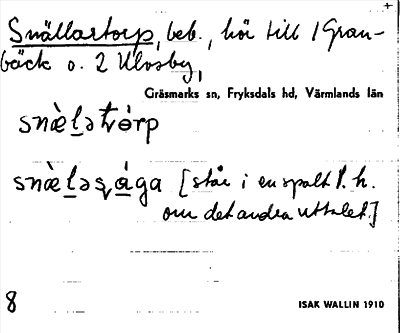 Snällastorp, beb., hör till 1 Gran-
bäck o. 2 Ulvsby,
Gräsmarks sn, Fryksdals hd, Värmlands län
snæ̀l̠ətɷ́rp
snæ̀l̠əsá̠ga [står i en spalt t. h.
om det andra uttalet.]
8
ISAK WALLIN 1910